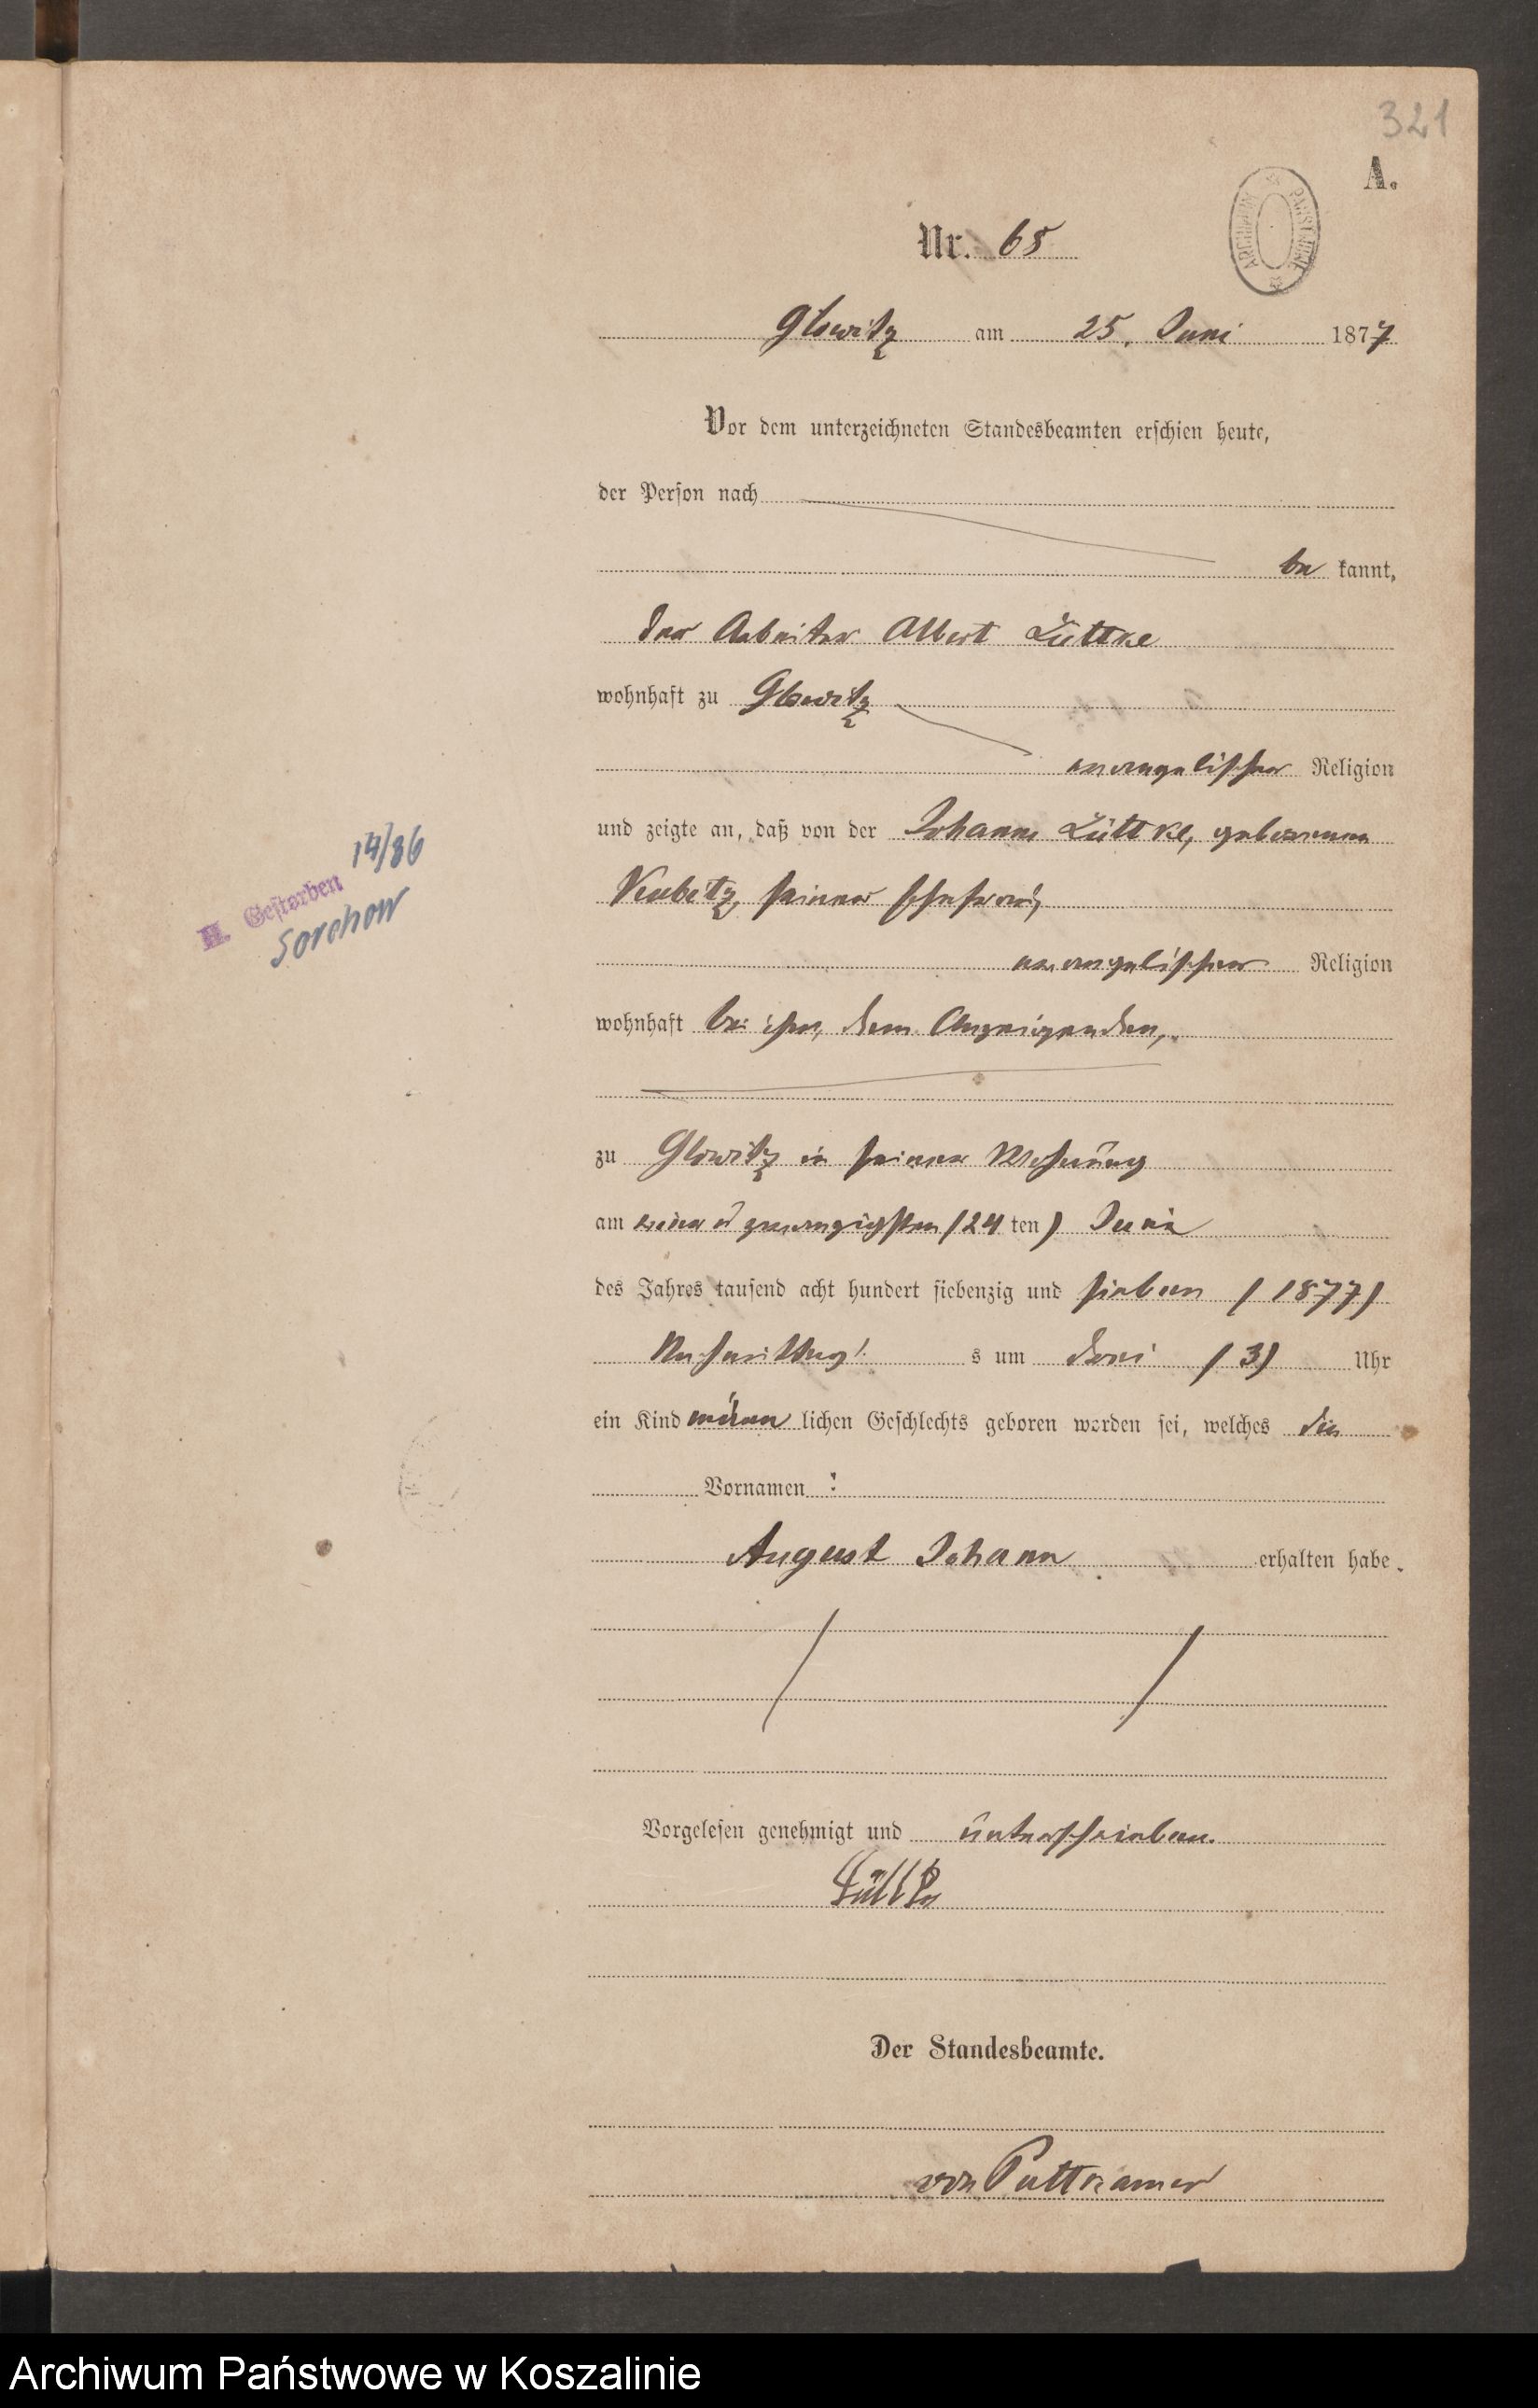 321
A.
ARCHIWUM PAŃSTWOWE
Nr. 65
Glowitz am 25. Juni 1877
Vor dem unterzeichneten Standesbeamten erschien heute,
der Person nach
be kannt,
der Arbeiter Albert Lüttke
wohnhaft zu Glowitz
evangelischer Religion
und zeigte an, daß von der Johanne Lüttke, geborenen
Kubitz, seiner Ehefrau,
evangelischer Religion
wohnhaft bei ihm, dem Anzeigenden,
zu Glowitz in seiner Wohnung
am vier u zwanzigsten (24 ten) Juni
des Jahres tausend acht hundert siebenzig und sieben (1877)
Nachmittag s um drei (3) Uhr
ein Kind männ lichen Geschlechts geboren worden sei, welches die
Vornamen :
August Johann erhalten habe.
Vorgelesen genehmigt und unterschrieben.
Lüttke
Der Standesbeamte.
von Puttkamer
14/86
H. Gestorben
Sorchow
Archiwum Państwowe w Koszalinie